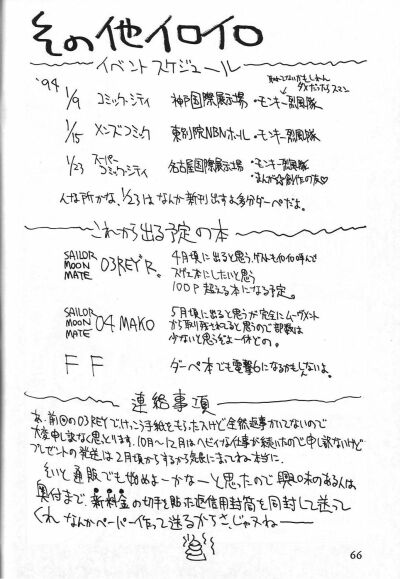 その他イロイロ
イベントスケジュール
'94
取れてないかもしれん
ダメだったらスマン
1/9 コミックシティ 神戸国際展示場 ・モンキー烈風隊
1/15 メンズコミック 東別院NBNホール ・モンキー烈風隊
1/23 スーパーコミックシティ 名古屋国際展示場 ・モンキー烈風隊
・まんが☆創作の友♡
んな所かな、1/23はなんか新刊出すよ多分ダーペだよ。
これから出る予定の本
SAILOR MOON MATE 03REY"R。
4月頃に出ると思う。ゲストもイロイロ呼んで
スゲェ本にしたいと思う
100P超える本になる予定。
SAILOR MOON MATE 04 MAKO
5月頃に出ると思うが完全にムーヴメント
から取り残されてると思うので部数は
少ないと思うぞよー体との。
FF
ダーペ本でも電撃6になるかもしんないよ。
連絡事項
あ、前回の03REYでけっこう手紙をもらったけど全然返事かいてないので
大変申し訳なく思とります。10月〜12月はヘビィな仕事が続いたので申し訳ないけど
プレゼントの発送は2月頃からするから気長にまってね本当に。
それと通販でも始めよーかなーと思ったので興味のある人は
奥付まで、新料金の切手を貼った返信用封筒を同封して送って
くれ なんかペーパー作って送るからさ、じゃァねー
66